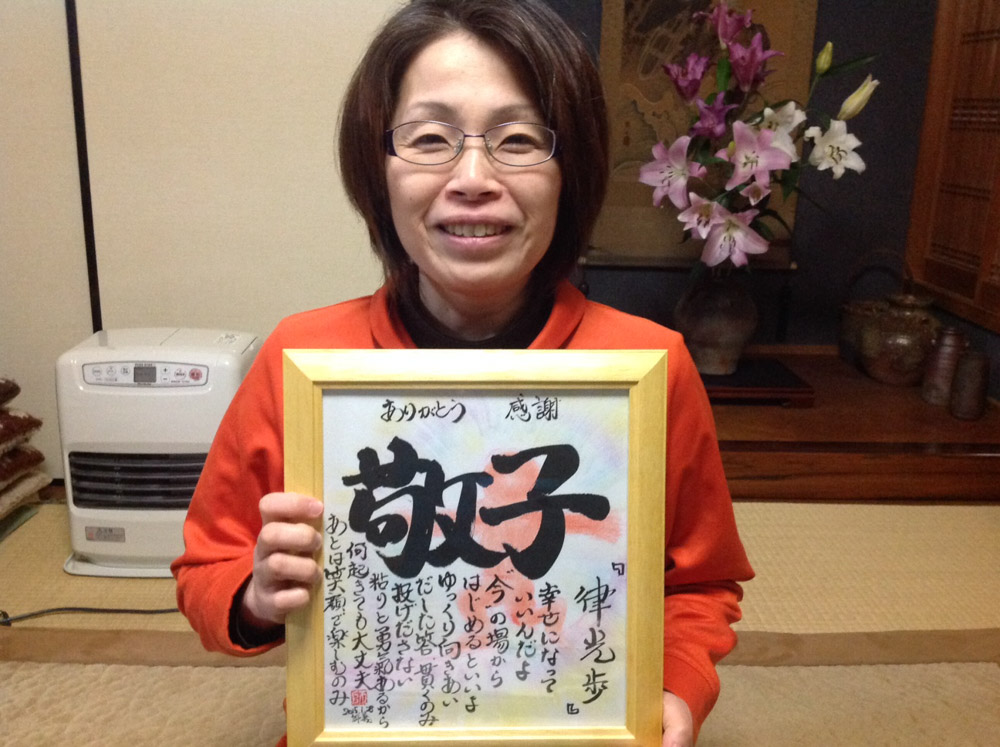 ありがとう 感謝
敬子
『律光歩』
幸せになって
いいんだよ
“今”の場から
はじめるといいよ
ゆっくり向きあい
だした答 貫くのみ
投げださない
粘りと勇氣あるから
何起きても大丈夫
あとは笑顔で楽しむのみ